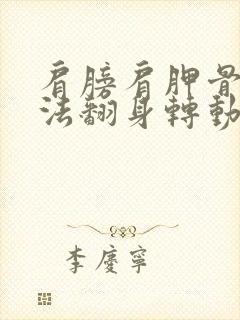 肩膀肩胛骨
法翻身轉動
李慶寧